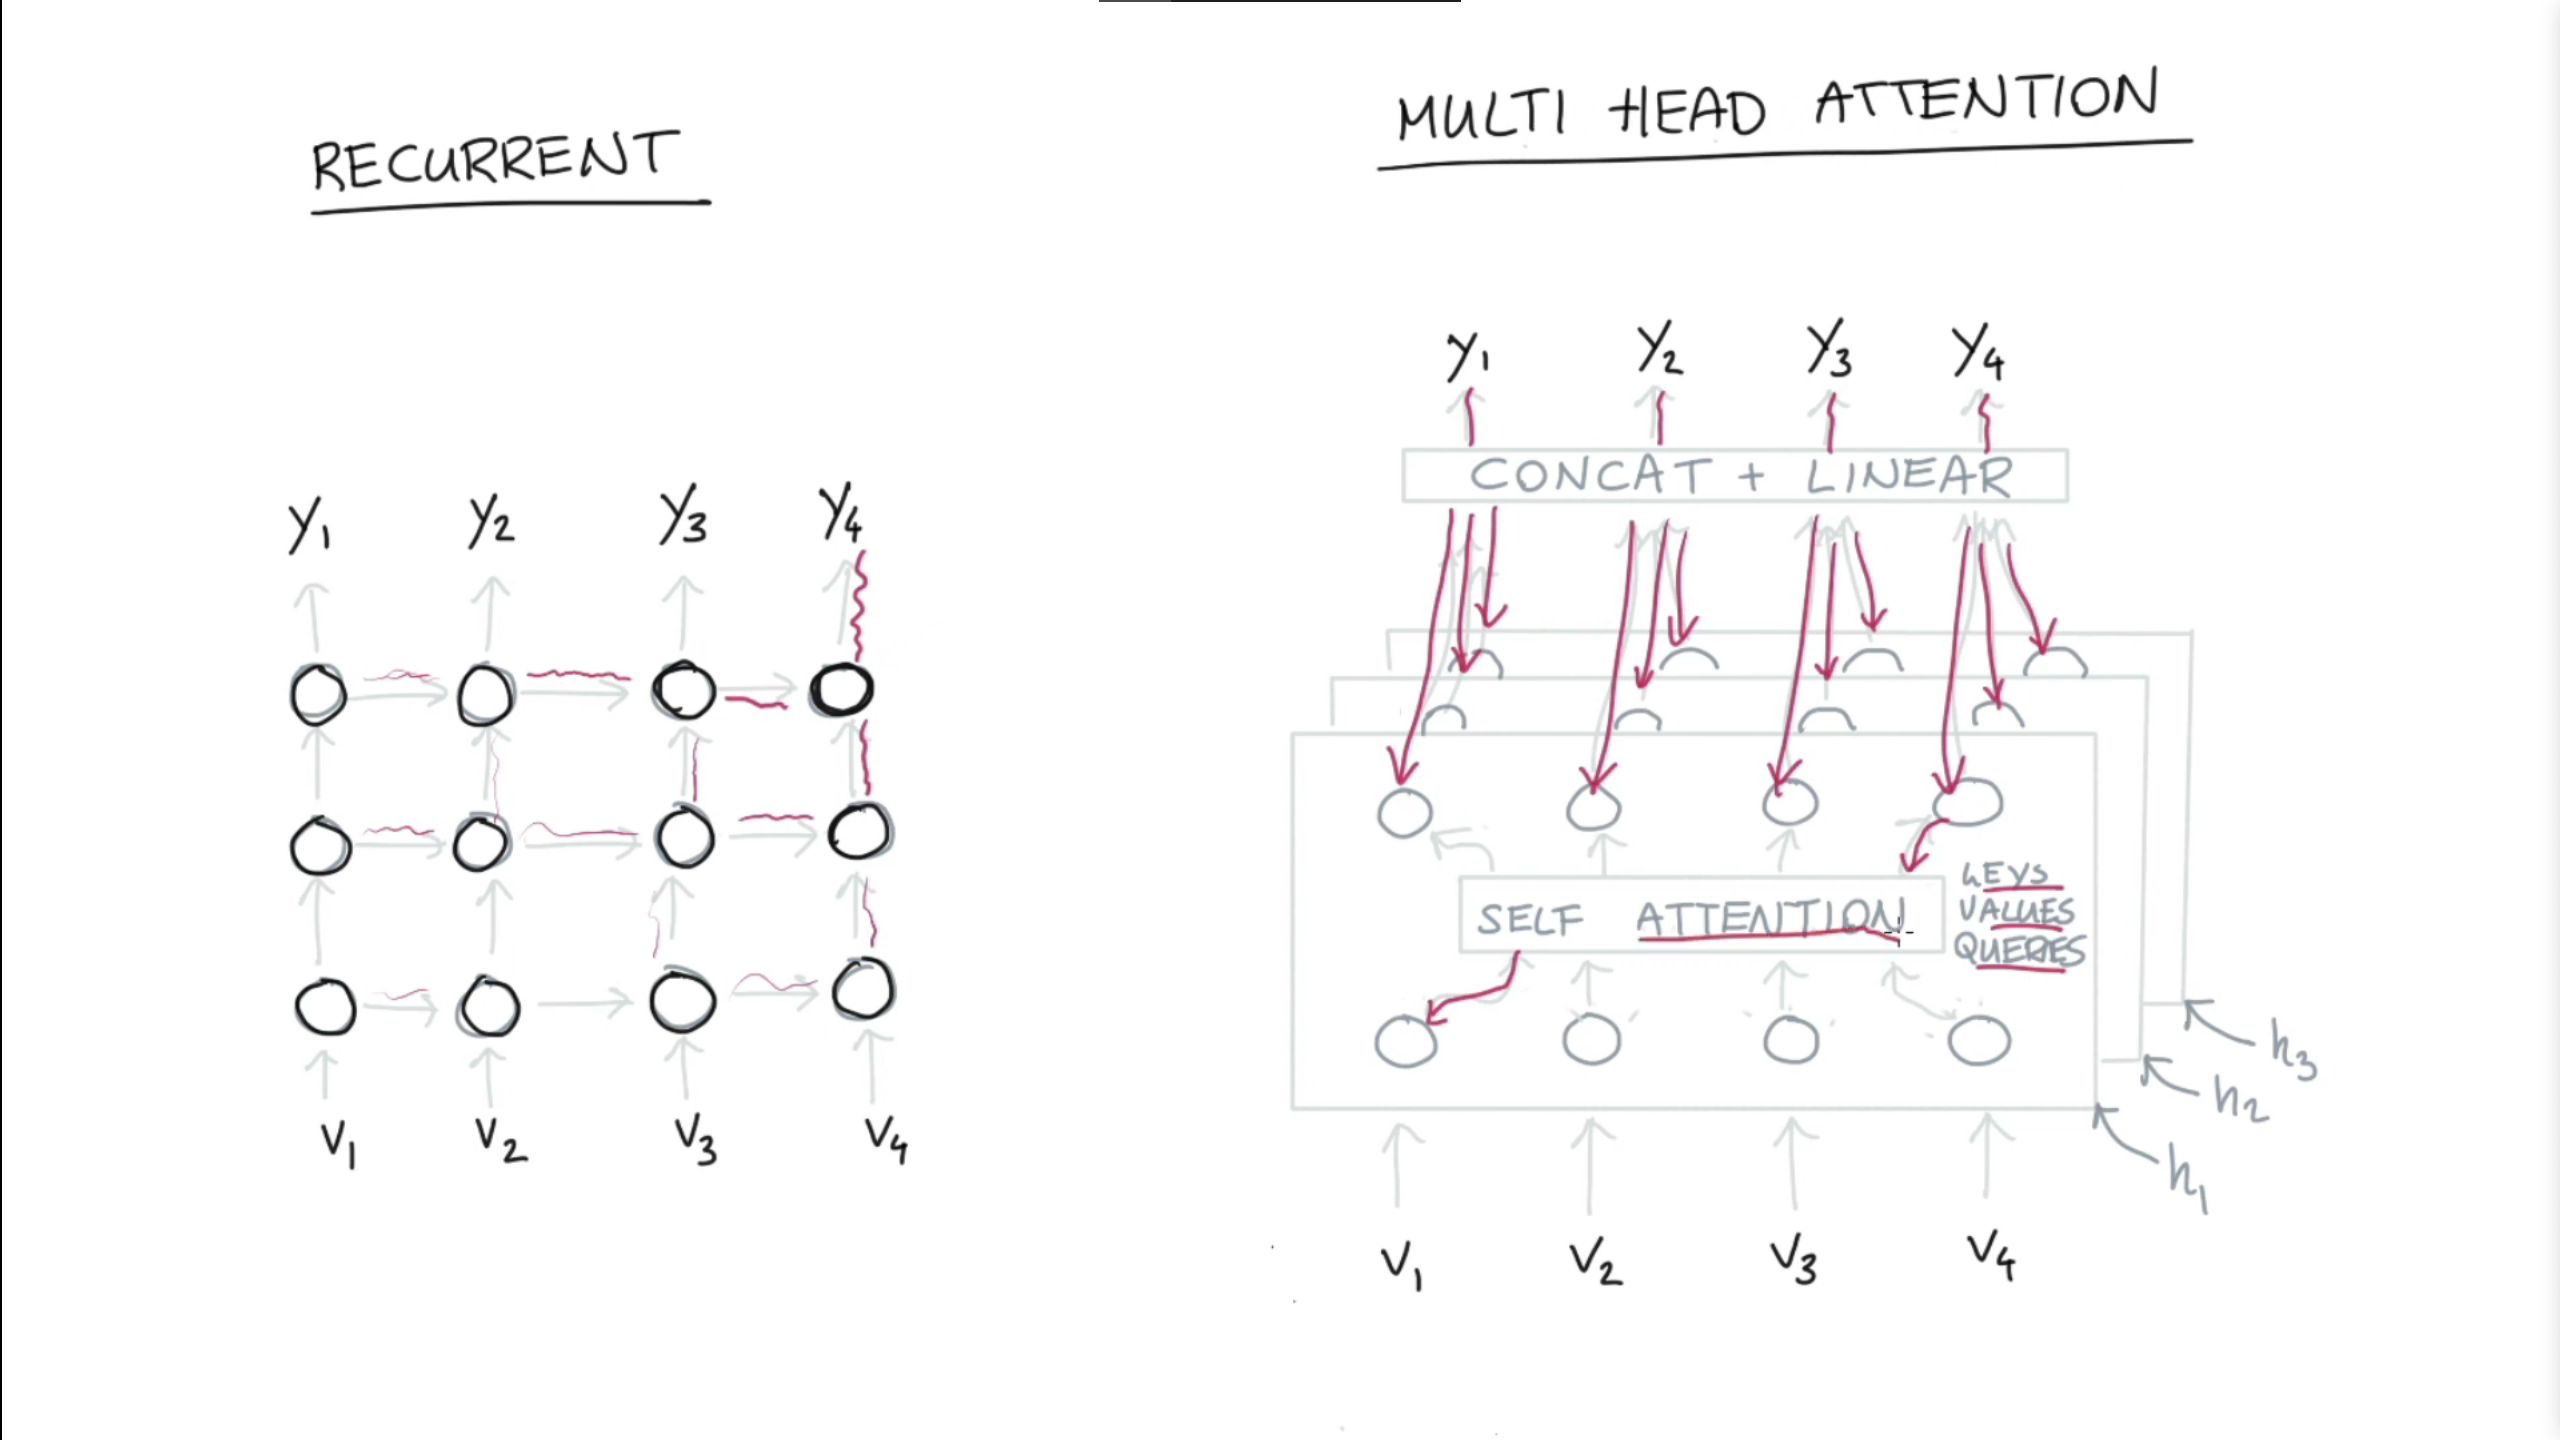 RECURRENT
y1 y2 y3 y4
v1 v2 v3 v4
MULTI HEAD ATTENTION
y1 y2 y3 y4
CONCAT + LINEAR
SELF ATTENTION
KEYS
VALUES
QUERIES
h3
h2
h1
v1 v2 v3 v4